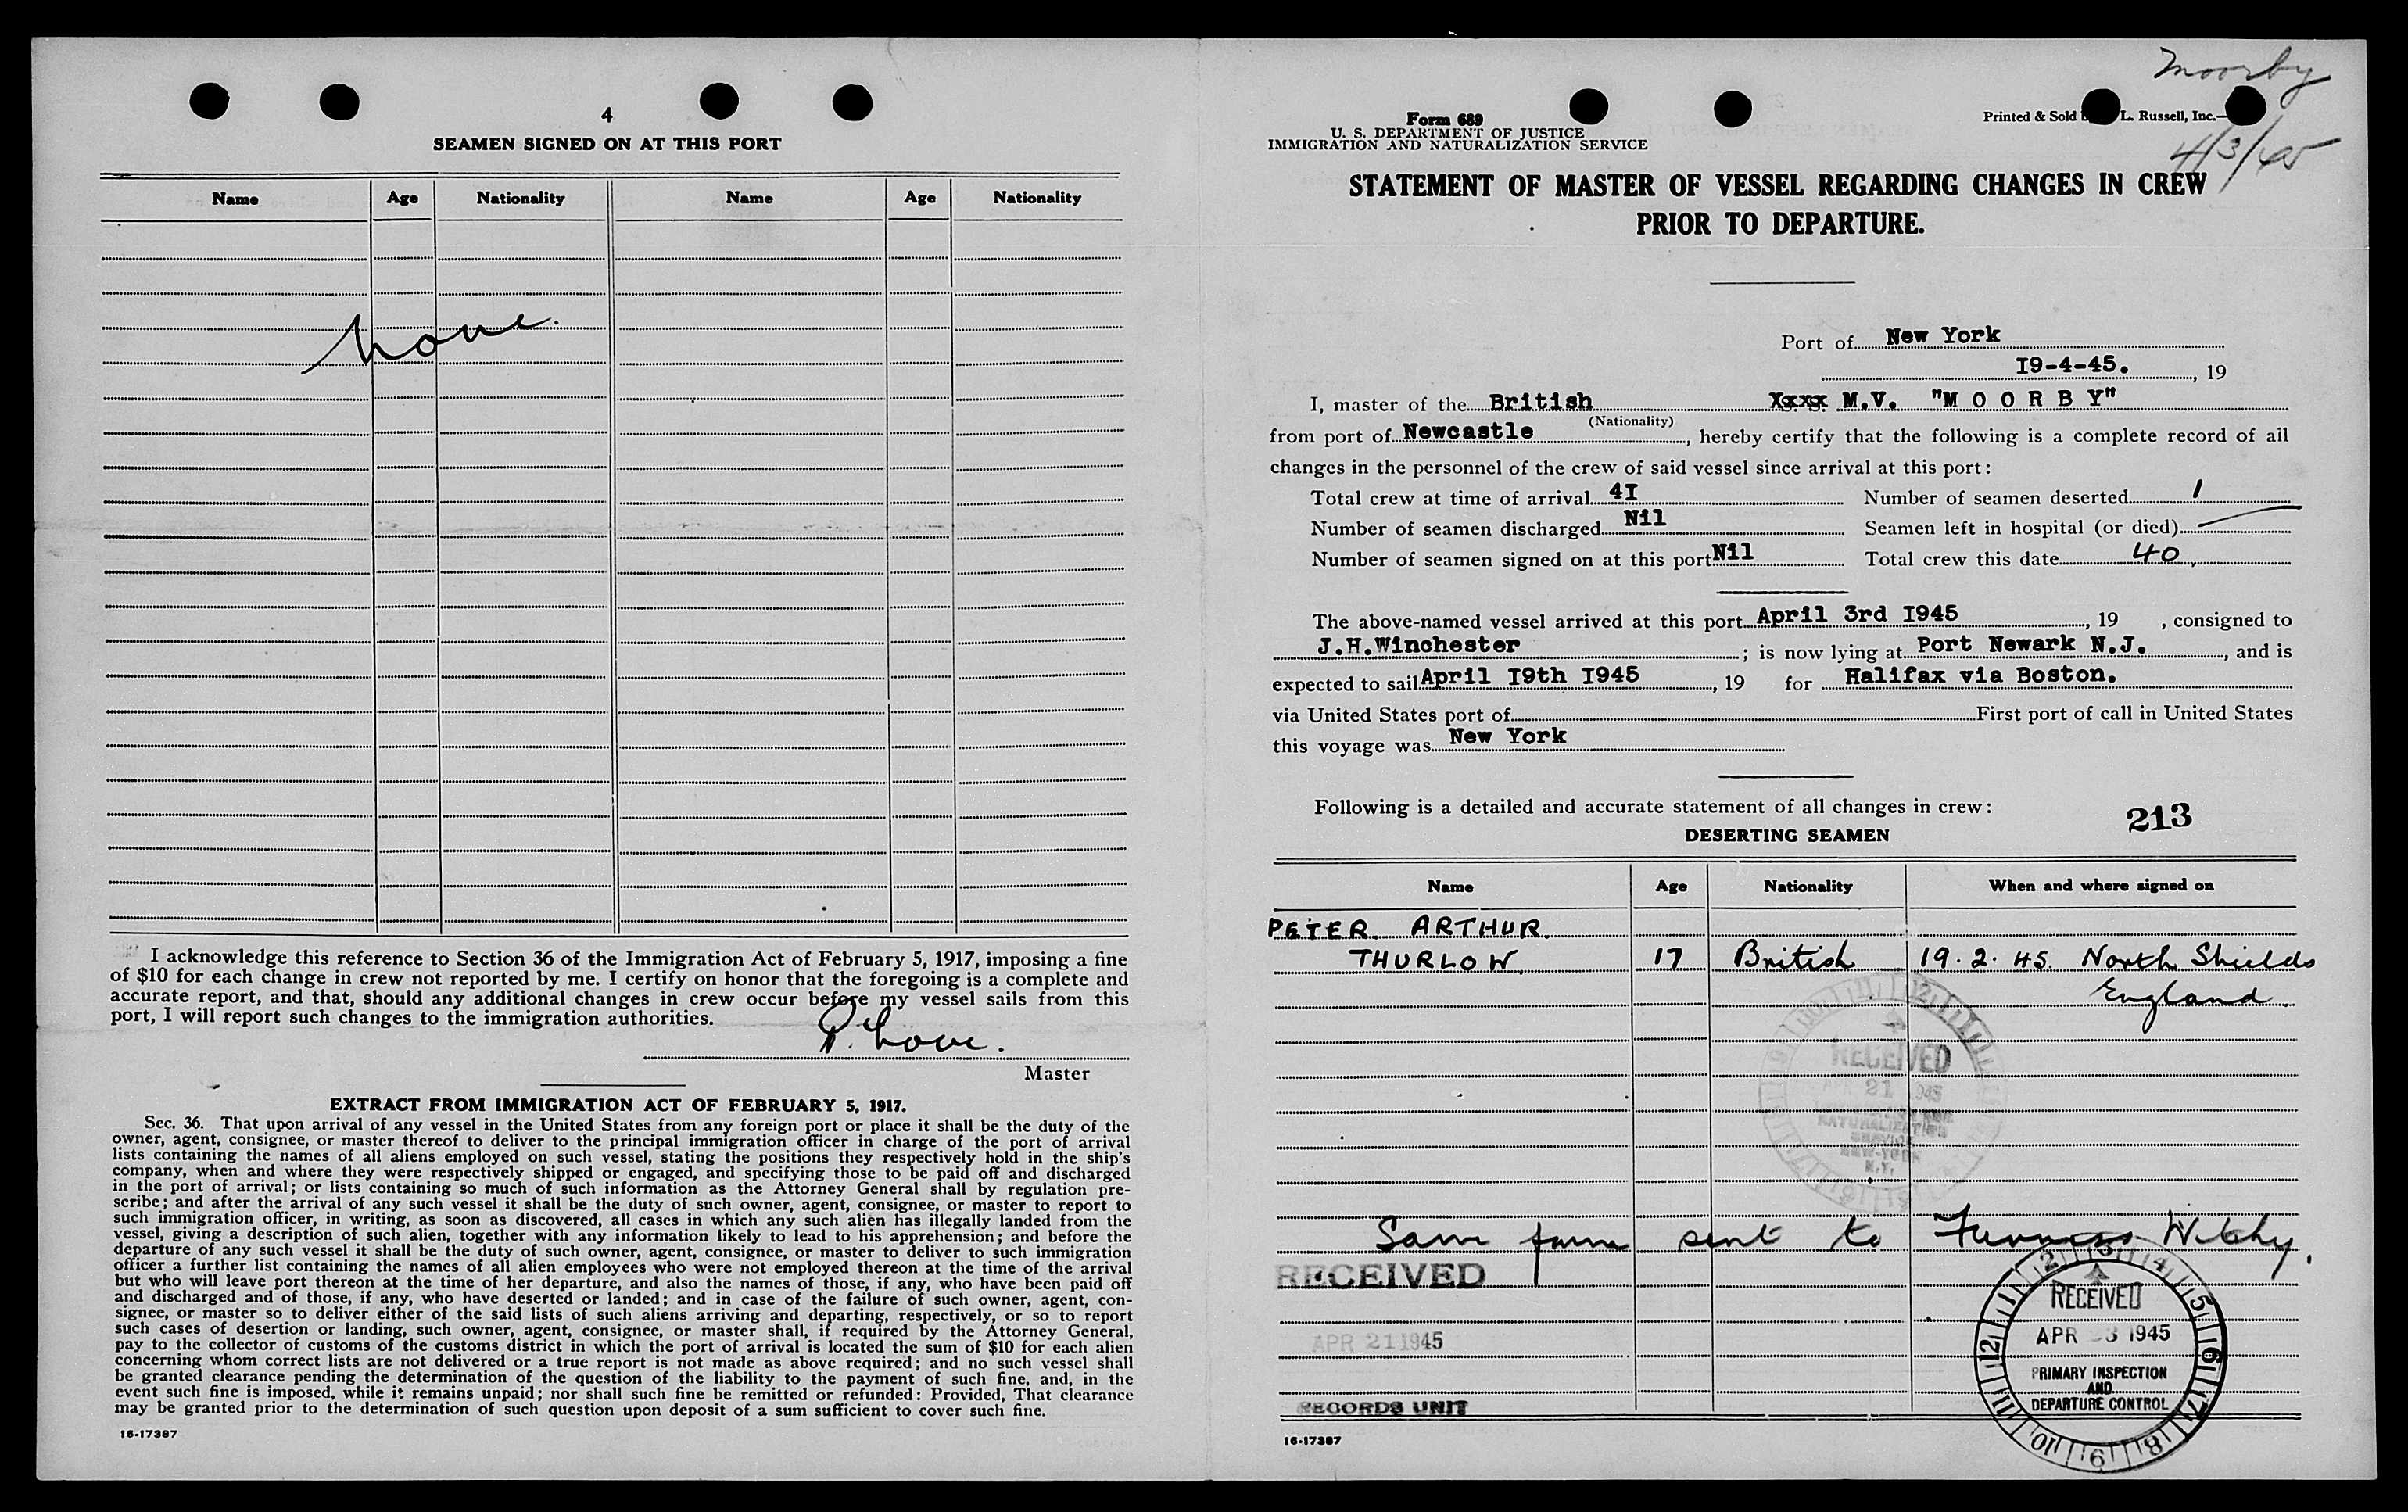 4
SEAMEN SIGNED ON AT THIS PORT
Name Age Nationality Name Age Nationality
None.
I acknowledge this reference to Section 36 of the Immigration Act of February 5, 1917, imposing a fine
of $10 for each change in crew not reported by me. I certify on honor that the foregoing is a complete and
accurate report, and that, should any additional changes in crew occur before my vessel sails from this
port, I will report such changes to the immigration authorities.
Master
EXTRACT FROM IMMIGRATION ACT OF FEBRUARY 5, 1917.
Sec. 36. That upon arrival of any vessel in the United States from any foreign port or place it shall be the duty of the
owner, agent, consignee, or master thereof to deliver to the principal immigration officer in charge of the port of arrival
lists containing the names of all aliens employed on such vessel, stating the positions they respectively hold in the ship's
company, when and where they were respectively shipped or engaged, and specifying those to be paid off and discharged
in the port of arrival; or lists containing so much of such information as the Attorney General shall by regulation pre-
scribe; and after the arrival of any such vessel it shall be the duty of such owner, agent, consignee, or master to report to
such immigration officer, in writing, as soon as discovered, all cases in which any such alien has illegally landed from the
vessel, giving a description of such alien, together with any information likely to lead to his apprehension; and before the
departure of any such vessel it shall be the duty of such owner, agent, consignee, or master to deliver to such immigration
officer a further list containing the names of all alien employees who were not employed thereon at the time of the arrival
but who will leave port thereon at the time of her departure, and also the names of those, if any, who have been paid off
and discharged and of those, if any, who have deserted or landed; and in case of the failure of such owner, agent, con-
signee, or master so to deliver either of the said lists of such aliens arriving and departing, respectively, or so to report
such cases of desertion or landing, such owner, agent, consignee, or master shall, if required by the Attorney General,
pay to the collector of customs of the customs district in which the port of arrival is located the sum of $10 for each alien
concerning whom correct lists are not delivered or a true report is not made as above required; and no such vessel shall
be granted clearance pending the determination of the question of the liability to the payment of such fine, and, in the
event such fine is imposed, while it remains unpaid; nor shall such fine be remitted or refunded: Provided, That clearance
may be granted prior to the determination of such question upon deposit of a sum sufficient to cover such fine.
16-17387
Moorby
4/3/45
Form 689
U. S. DEPARTMENT OF JUSTICE
IMMIGRATION AND NATURALIZATION SERVICE
Printed & Sold L. Russell, Inc.—
STATEMENT OF MASTER OF VESSEL REGARDING CHANGES IN CREW
PRIOR TO DEPARTURE.
Port of New York
I9-4-45. , 19
I, master of the British Xxxx M.V. "M O O R B Y"
(Nationality)
from port of Newcastle, hereby certify that the following is a complete record of all
changes in the personnel of the crew of said vessel since arrival at this port:
Total crew at time of arrival 4I Number of seamen deserted 1
Number of seamen discharged Nil Seamen left in hospital (or died) —
Number of seamen signed on at this port Nil Total crew this date 40
The above-named vessel arrived at this port April 3rd I945, 19 , consigned to
J.H.Winchester ; is now lying at Port Newark N.J. , and is
expected to sail April I9th I945, 19 for Halifax via Boston.
via United States port of First port of call in United States
this voyage was New York
Following is a detailed and accurate statement of all changes in crew:
213
DESERTING SEAMEN
Name Age Nationality When and where signed on
PETER ARTHUR
THURLOW 17 British 19.2.45. North Shields
England
RECEIVED
APR 21 1945
NATURALIZATION
SERVICE
NEW-YORK
N.Y.
Same form sent to Furness Withy.
RECEIVED
APR 21 1945
RECORDS UNIT
RECEIVED
APR 3 1945
PRIMARY INSPECTION
AND
DEPARTURE CONTROL
12 2 3 4 5 6 7 8 9 10 11
16-17387